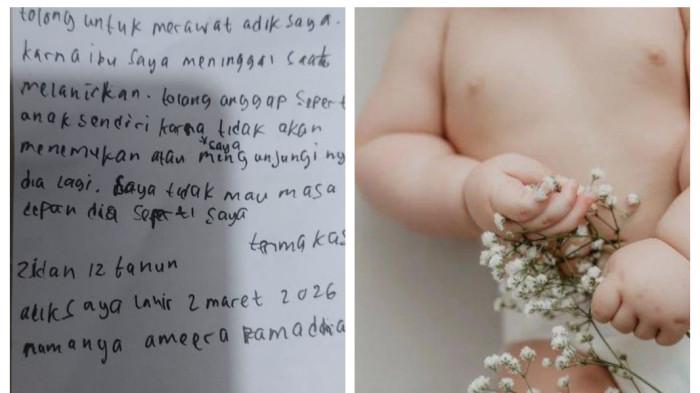 tolong untuk merawat adik saya.
karna ibu saya meninggal saat
melahirkan. tolong anggap seperti
anak sendiri karna tidak akan
*saya
menemukan atau mengunjungi
dia lagi. Saya tidak mau masa
depan dia seperti saya
terma kas
Zidan 12 tahun
adik saya lahir 2 maret 2026
namanya ameera Ramaddia